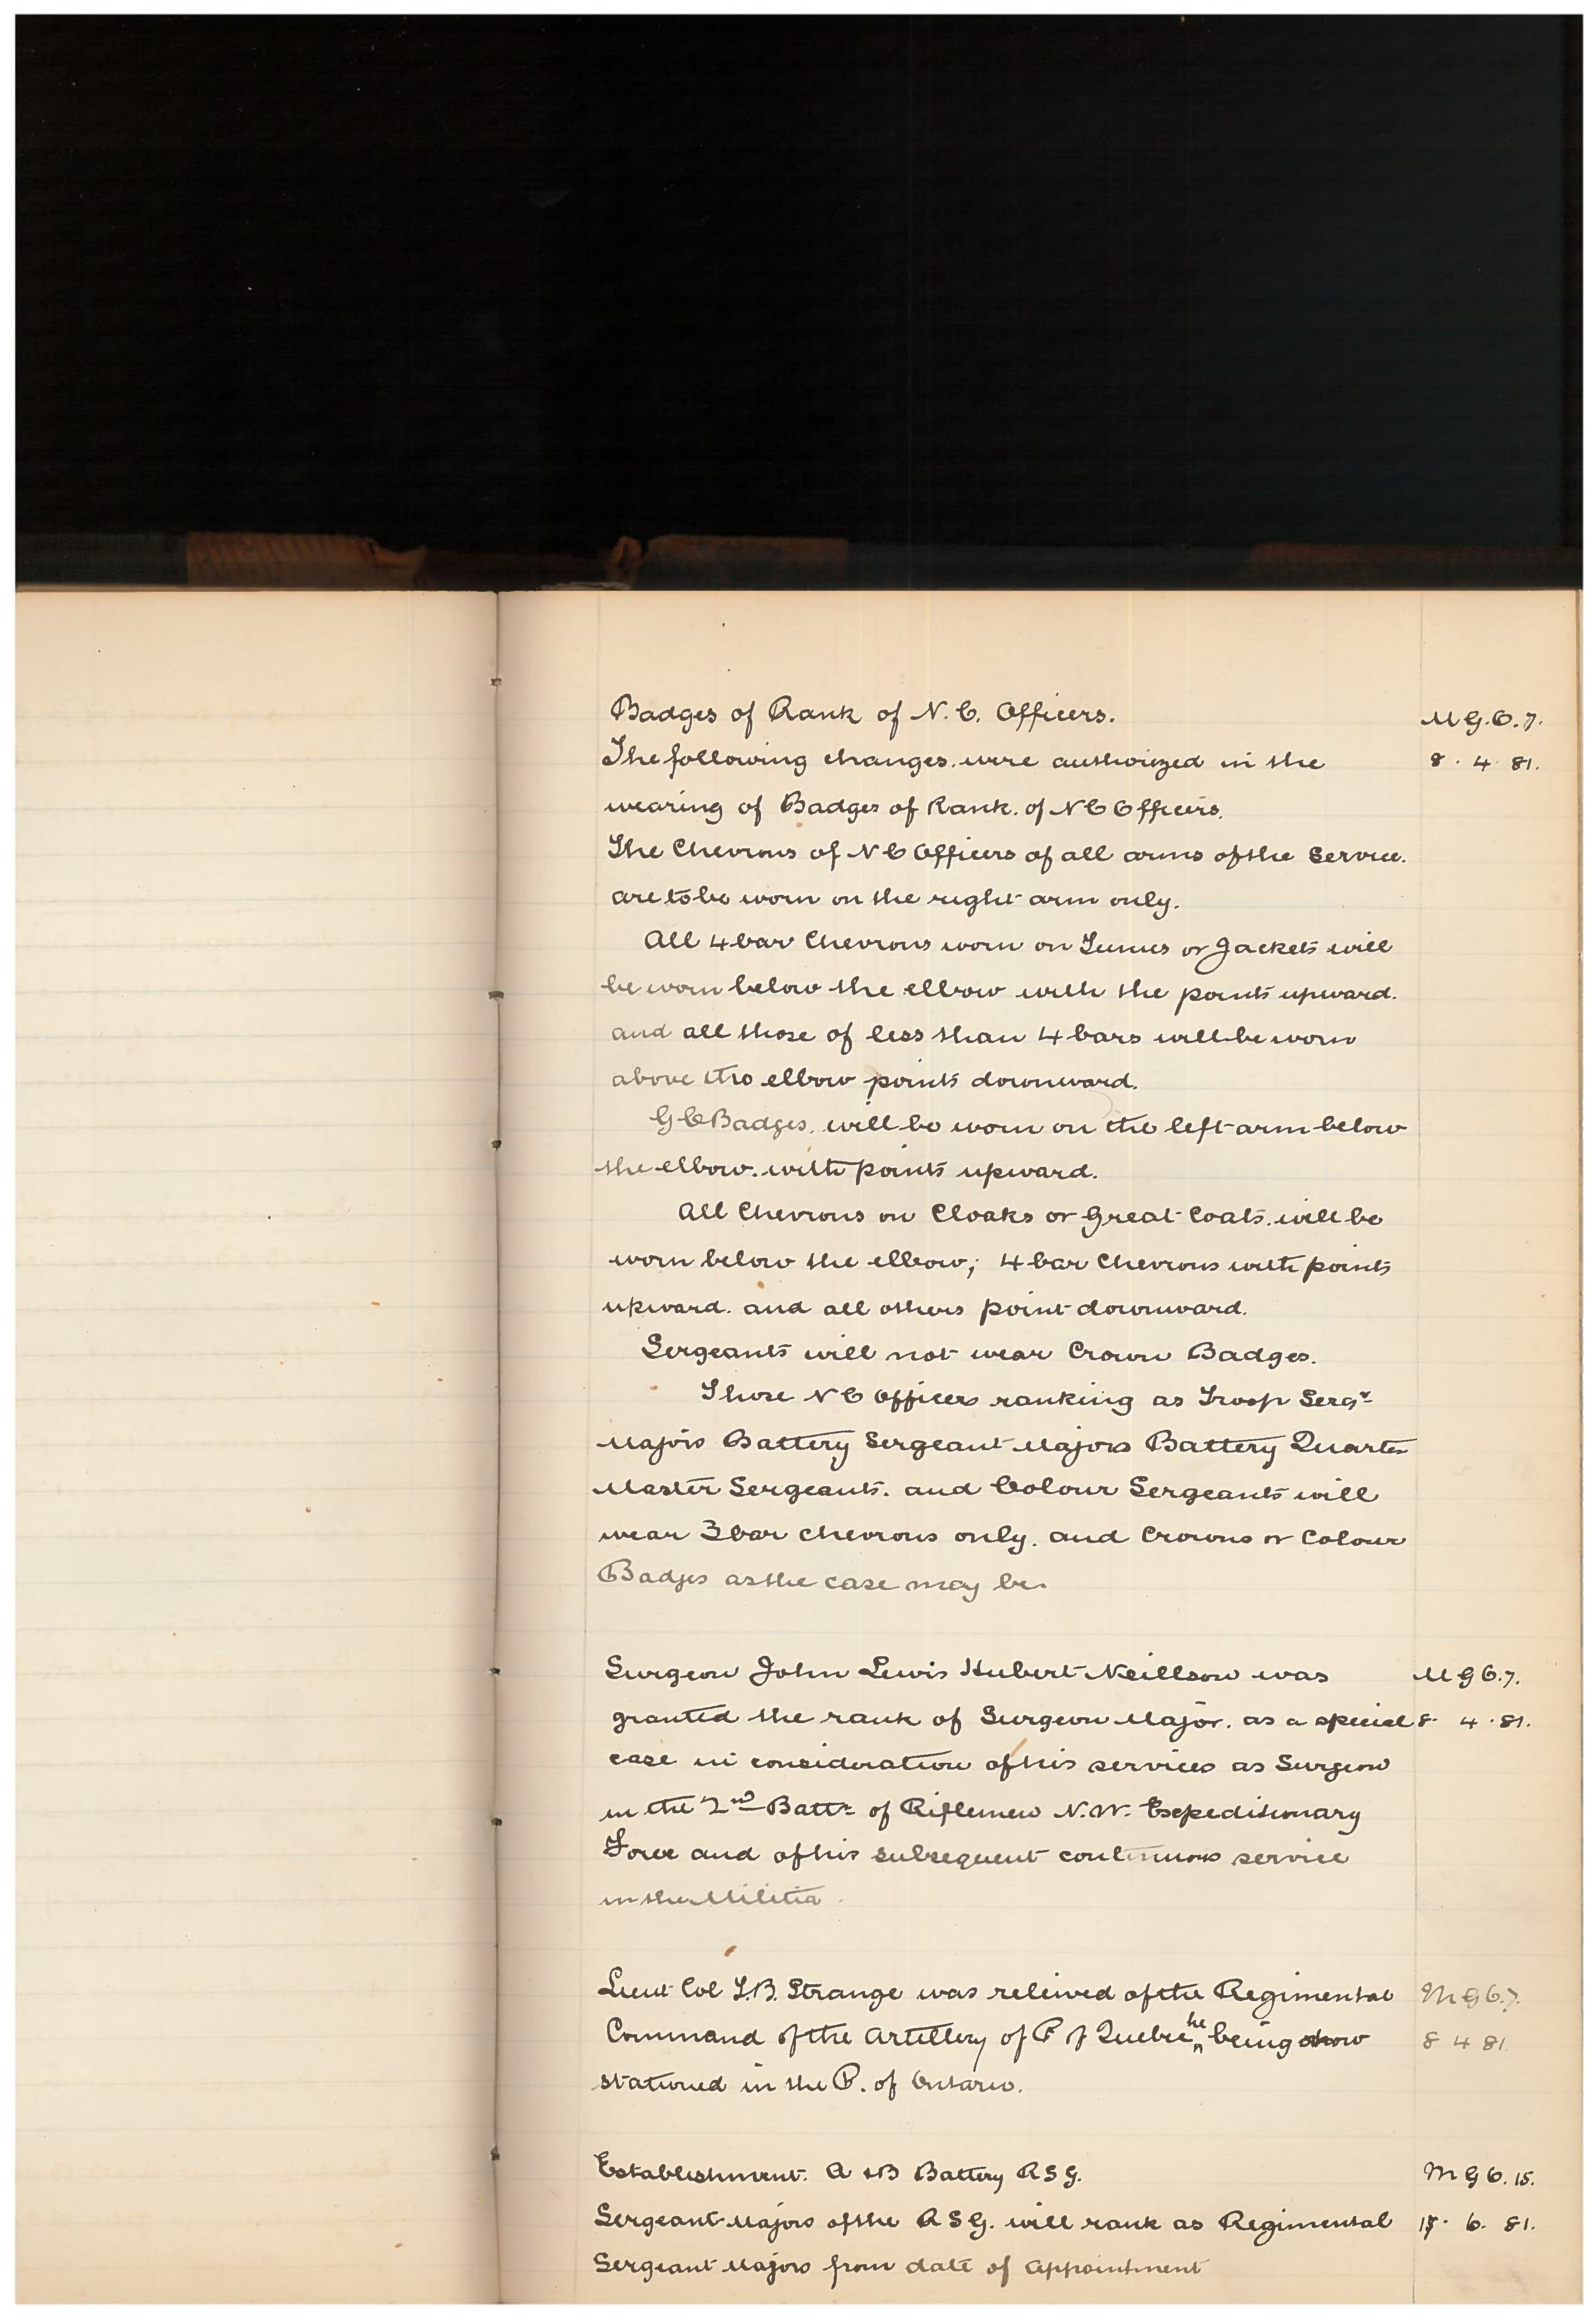 Badges of Rank of N. C. Officers. M G. O. 7.
The following changes were authorized in the 8. 4. 81.
wearing of Badges of Rank. of N C Officers.
The Chevrons of N C Officers of all arms of the Service.
are to be worn on the right arm only.
All 4 bar Chevrons worn on Tunics or Jackets will
be worn below the elbow with the points upward.
and all those of less than 4 bars will be worn
above the elbow points downward.
G C Badges. will be worn on the left arm below
the elbow. with points upward.
All Chevrons on Cloaks or Great Coats. will be
worn below the elbow; 4 bar Chevrons with points
upward. and all others point downward.
Sergeants will not wear Crown Badges.
Those N C Officers ranking as Troop Sergt
Majors Battery Sergeant Majors Battery Quarter
Master Sergeants. and Colour Sergeants will
wear 3 bar chevrons only. and Crowns or Colour
Badges as the case may be.
Surgeon John Lewis Hubert Neillson was M G O. 7.
granted the rank of Surgeon Major. as a special 8. 4. 81.
case in consideration of his services as Surgeon
in the 2nd Battn of Riflemen N. W. Expeditionary
Force and of his subsequent continuous service
in the Militia.
Lieut Col T. B. Strange was relieved of the Regimental M G O. 7.
Command of the Artillery of P of Quebec he being now 8 4 81.
stationed in the P. of Ontario.
Establishment. A & B Battery R S G. M G O. 15.
Sergeant Majors of the R S G. will rank as Regimental 6. 81.
Sergeant Majors from date of appointment